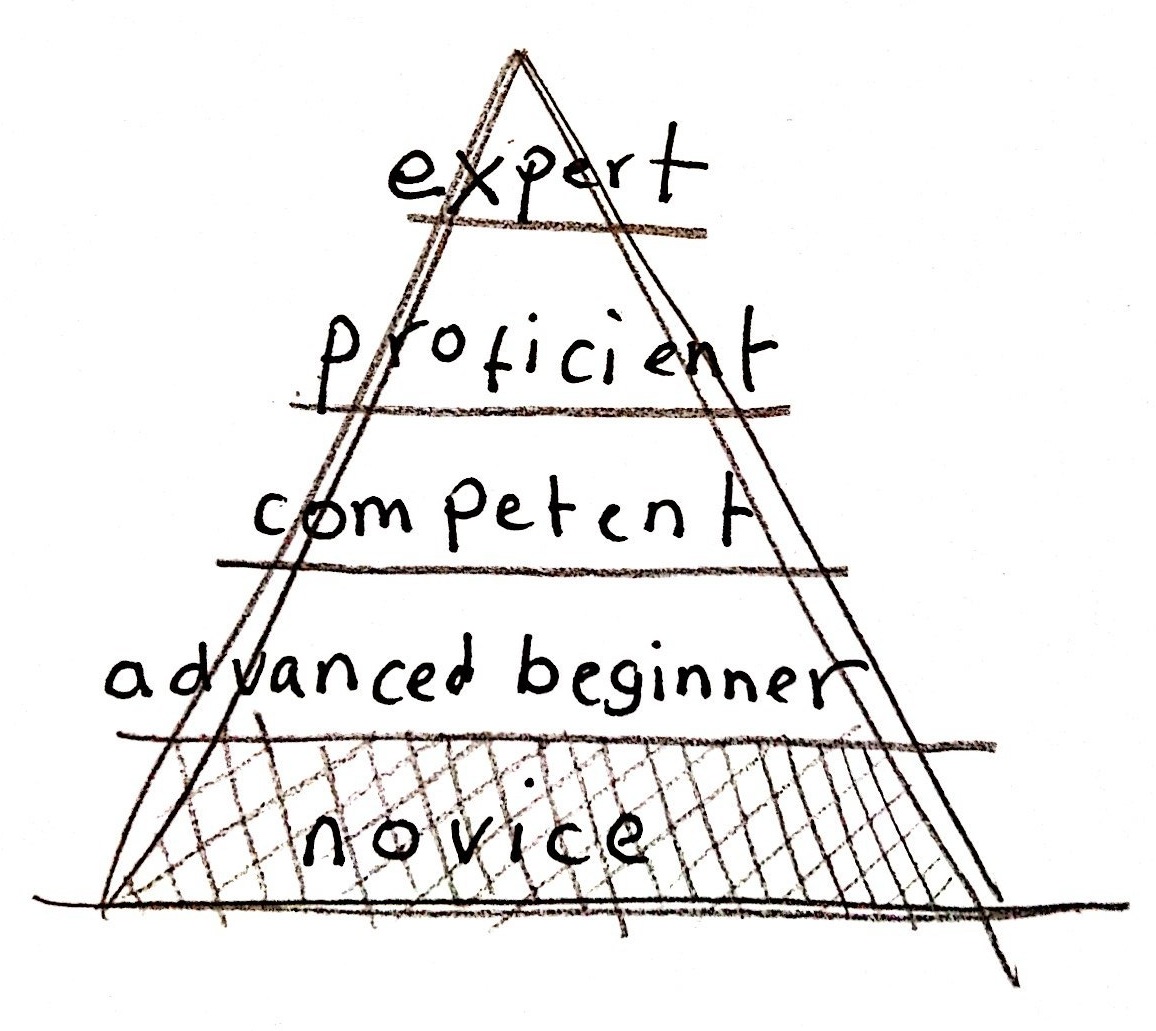 expert
proficient
competent
advanced beginner
novice